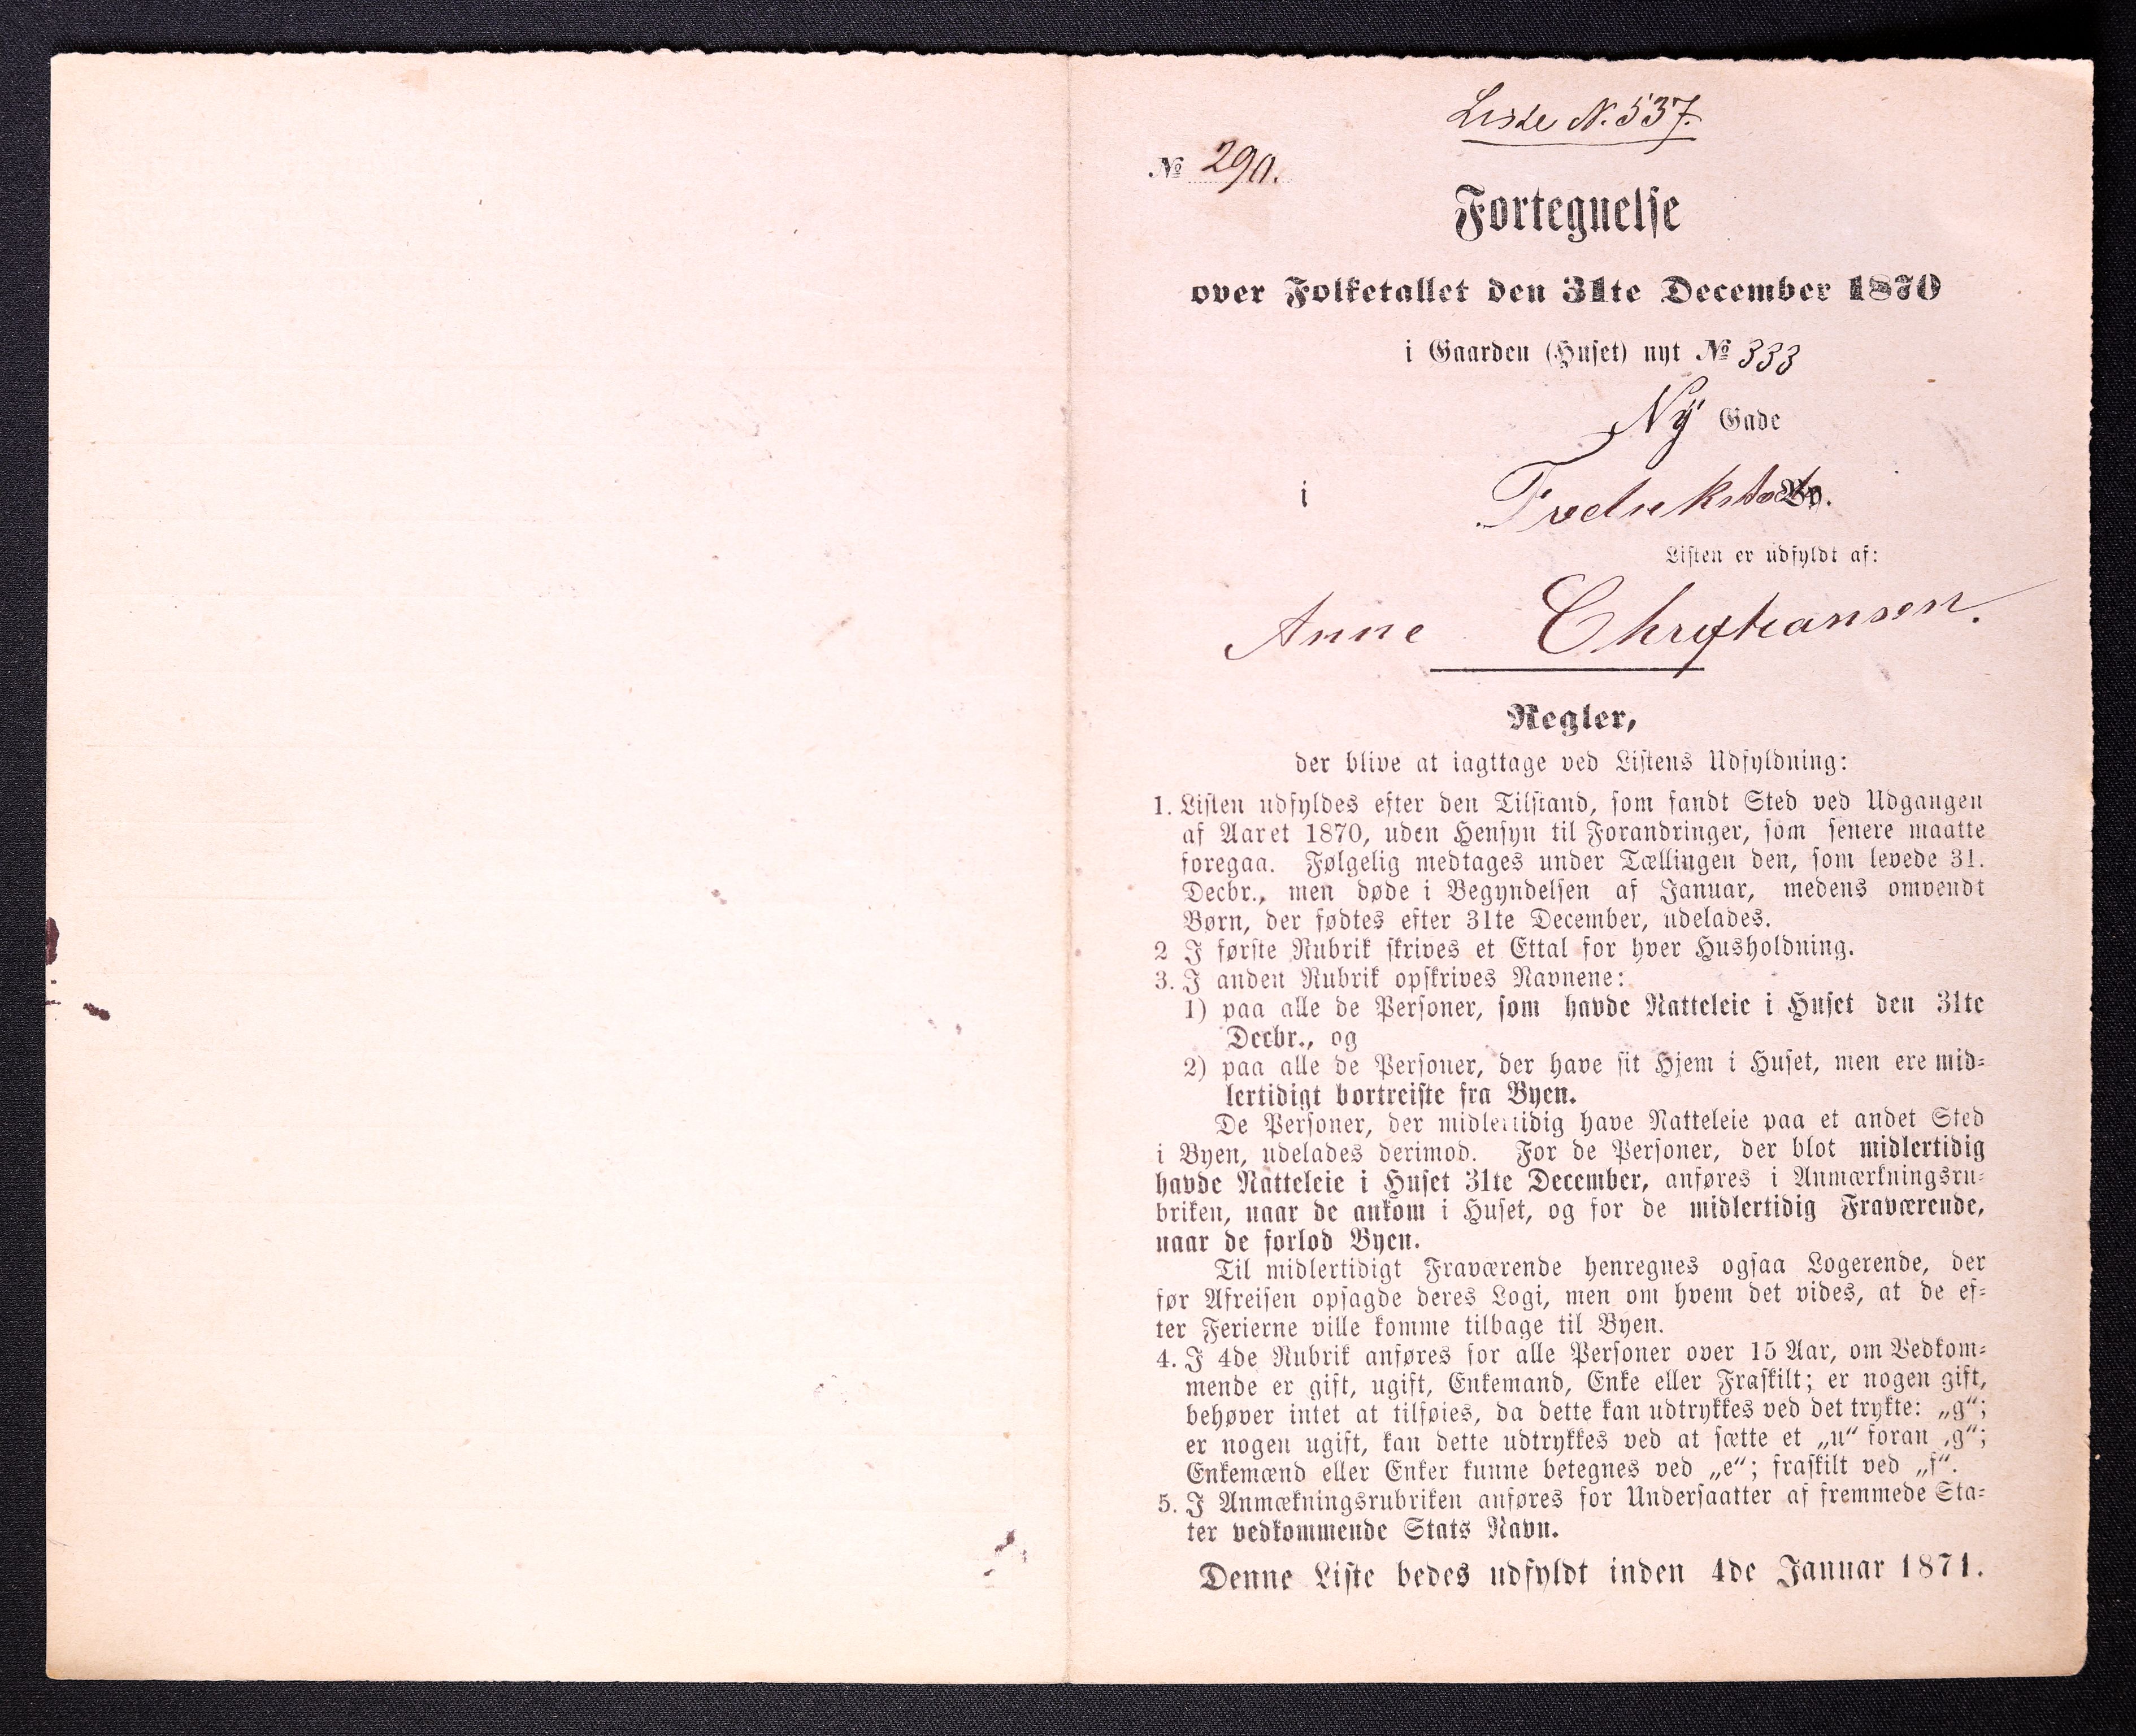 Liste N. 537.
№ 290.
Fortegnelse
over Folketallet den 31te December 1870
i Gaarden (Huset) nyt № 333
Ny Gade
i Fredrikstad By.
Listen er udfyldt af:
Anne Chrystiansen.
Regler,
der blive at iagttage ved Listens Udfyldning:
1. Listen udfyldes efter den Tilstand, som fandt Sted ved Udgangen
af Aaret 1870, uden Hensyn til Forandringer, som senere maatte
foregaa. Følgelig medtages under Tællingen den, som levede 31.
Decbr., men døde i Begyndelsen af Januar, medens omvendt
Børn, der fødtes efter 31te December, udelades.
2 I første Rubrik skrives et Ettal for hver Husholdning.
3. I anden Rubrik opskrives Navnene:
1) paa alle de Personer, som havde Natteleie i Huset den 31te
Decbr., og
2) paa alle de Personer, der have sit Hjem i Huset, men ere mid-
lertidigt bortreiste fra Byen.
De Personer, der midlertidig have Natteleie paa et andet Sted
i Byen, udelades derimod. For de Personer, der blot midlertidig
havde Natteleie i Huset 31te December, anføres i Anmærkningsru-
briken, naar de ankom i Huset, og for de midlertidig Fraværende,
naar de forlod Byen.
Til midlertidigt Fraværende henregnes ogsaa Logerende, der
før Afreisen opsagde deres Logi, men om hvem det vides, at de ef-
ter Ferierne ville komme tilbage til Byen.
4. I 4de Rubrik anføres for alle Personer over 15 Aar, om Vedkom-
mende er gift, ugift, Enkemand, Enke eller Fraskilt; er nogen gift,
behøver intet at tilføies, da dette kan udtrykkes ved det trykte: „g“;
er nogen ugift, kan dette udtrykkes ved at sætte et „u“ foran ‚g“;
Enkemænd eller Enker kunne betegnes ved „e“; fraskilt ved „f“.
5. I Anmækningsrubriken anføres for Undersaatter af fremmede Sta-
ter vedkommende Stats Navn.
Denne Liste bedes udfyldt inden 4de Januar 1871.